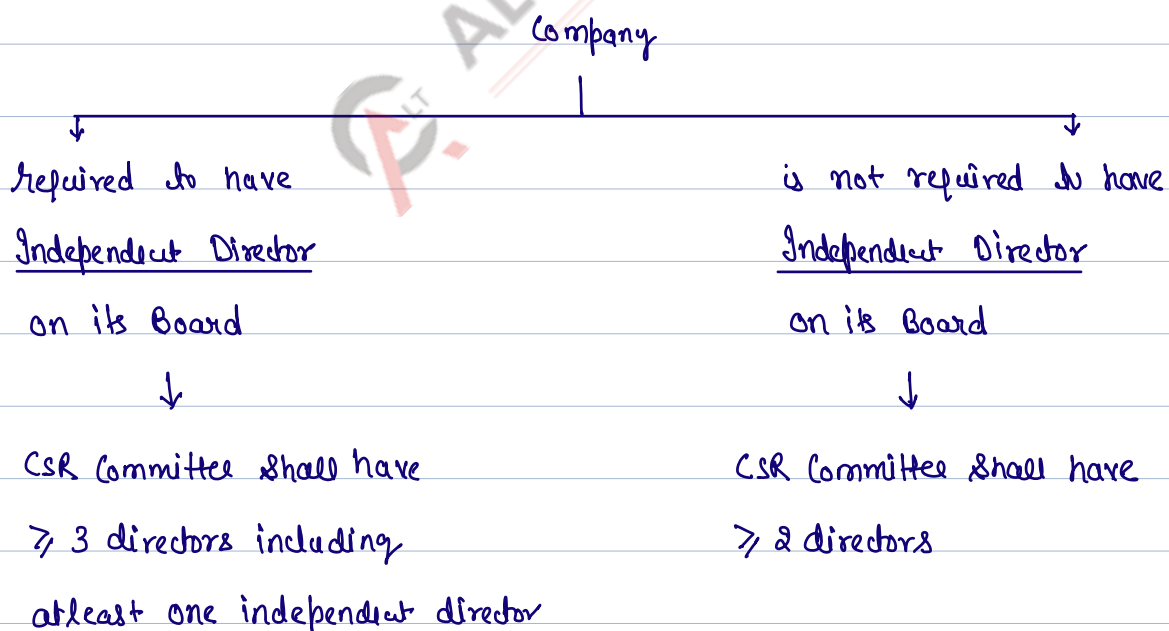 Company
required to have
Independent Director
on its Board
CSR Committee Shall have
⩾ 3 directors including
atleast one independent director
is not required to have
Independent Director
on its Board
CSR Committee Shall have
⩾ 2 directors
AL
LT